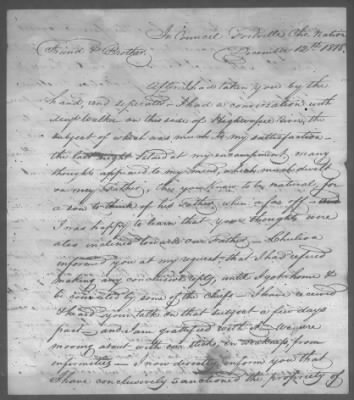 In Council Fortville Che. Nation
December 12th 1818.
Friend & Brother,
After I had taken you by the
hand, and seperated - I had a conversation with
Maj. Walker on this side of Highwassee River, the
subject of which was much to my satisfaction -
the last night I slept at my encampment, many
thoughts appeared to my mind, which much dwelt
on my Father, this you know to be natural, for
a son to think of his Father when afar off -
I was happy to learn that your thoughts were
also inclined towards our Father -
informed you at my request that I had refused
making any conclusive reply, until I got home &
be convinced by some of the Chiefs - I have received
& heard your talk on that subject a few days
past - and I am gratified with it - We are
moving about with our sticks, in weakness, from
infirmities - I now directly inform you that
I have conclusively sanctioned the propriety of